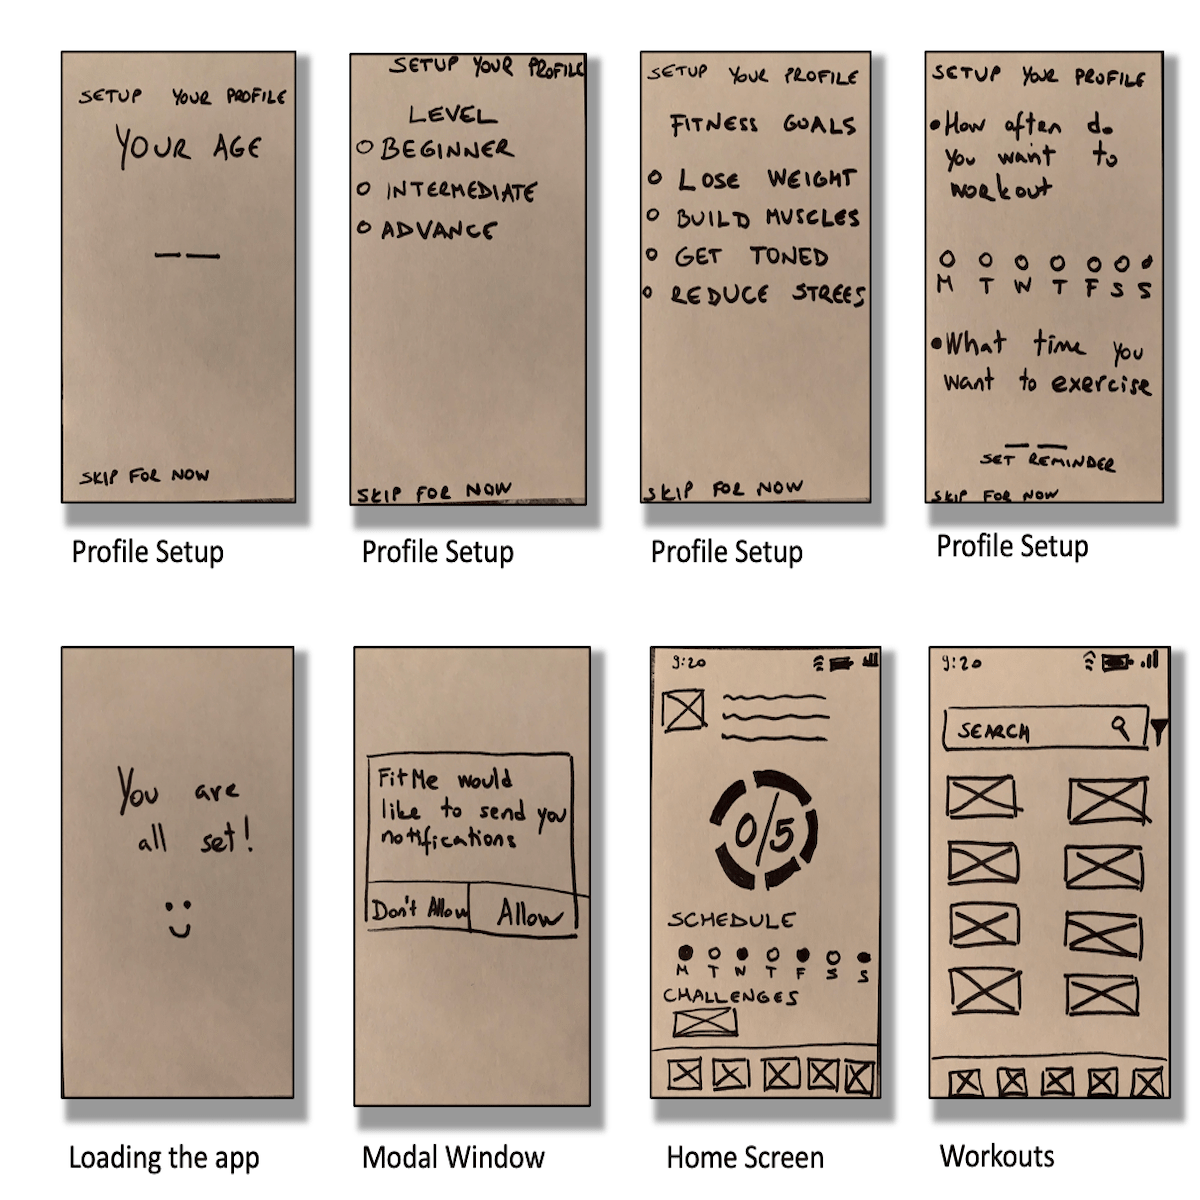 SETUP YOUR PROFILE
YOUR AGE
SKIP FOR NOW
Profile Setup
SETUP YOUR PROFILE
LEVEL
BEGINNER
INTERMEDIATE
ADVANCE
SKIP FOR NOW
Profile Setup
SETUP YOUR PROFILE
FITNESS GOALS
LOSE WEIGHT
BUILD MUSCLES
GET TONED
REDUCE STREES
SKIP FOR NOW
Profile Setup
SETUP YOUR PROFILE
•How often do
you want to
workout
M T W T F S S
•What time you
want to exercise
SET REMINDER
SKIP FOR NOW
Profile Setup
You are
all set!
Loading the app
FitMe would
like to send you
notifications
Don't Allow Allow
Modal Window
9:20
0/5
SCHEDULE
M T W T F S S
CHALLENGES
Home Screen
9:20
SEARCH
Workouts